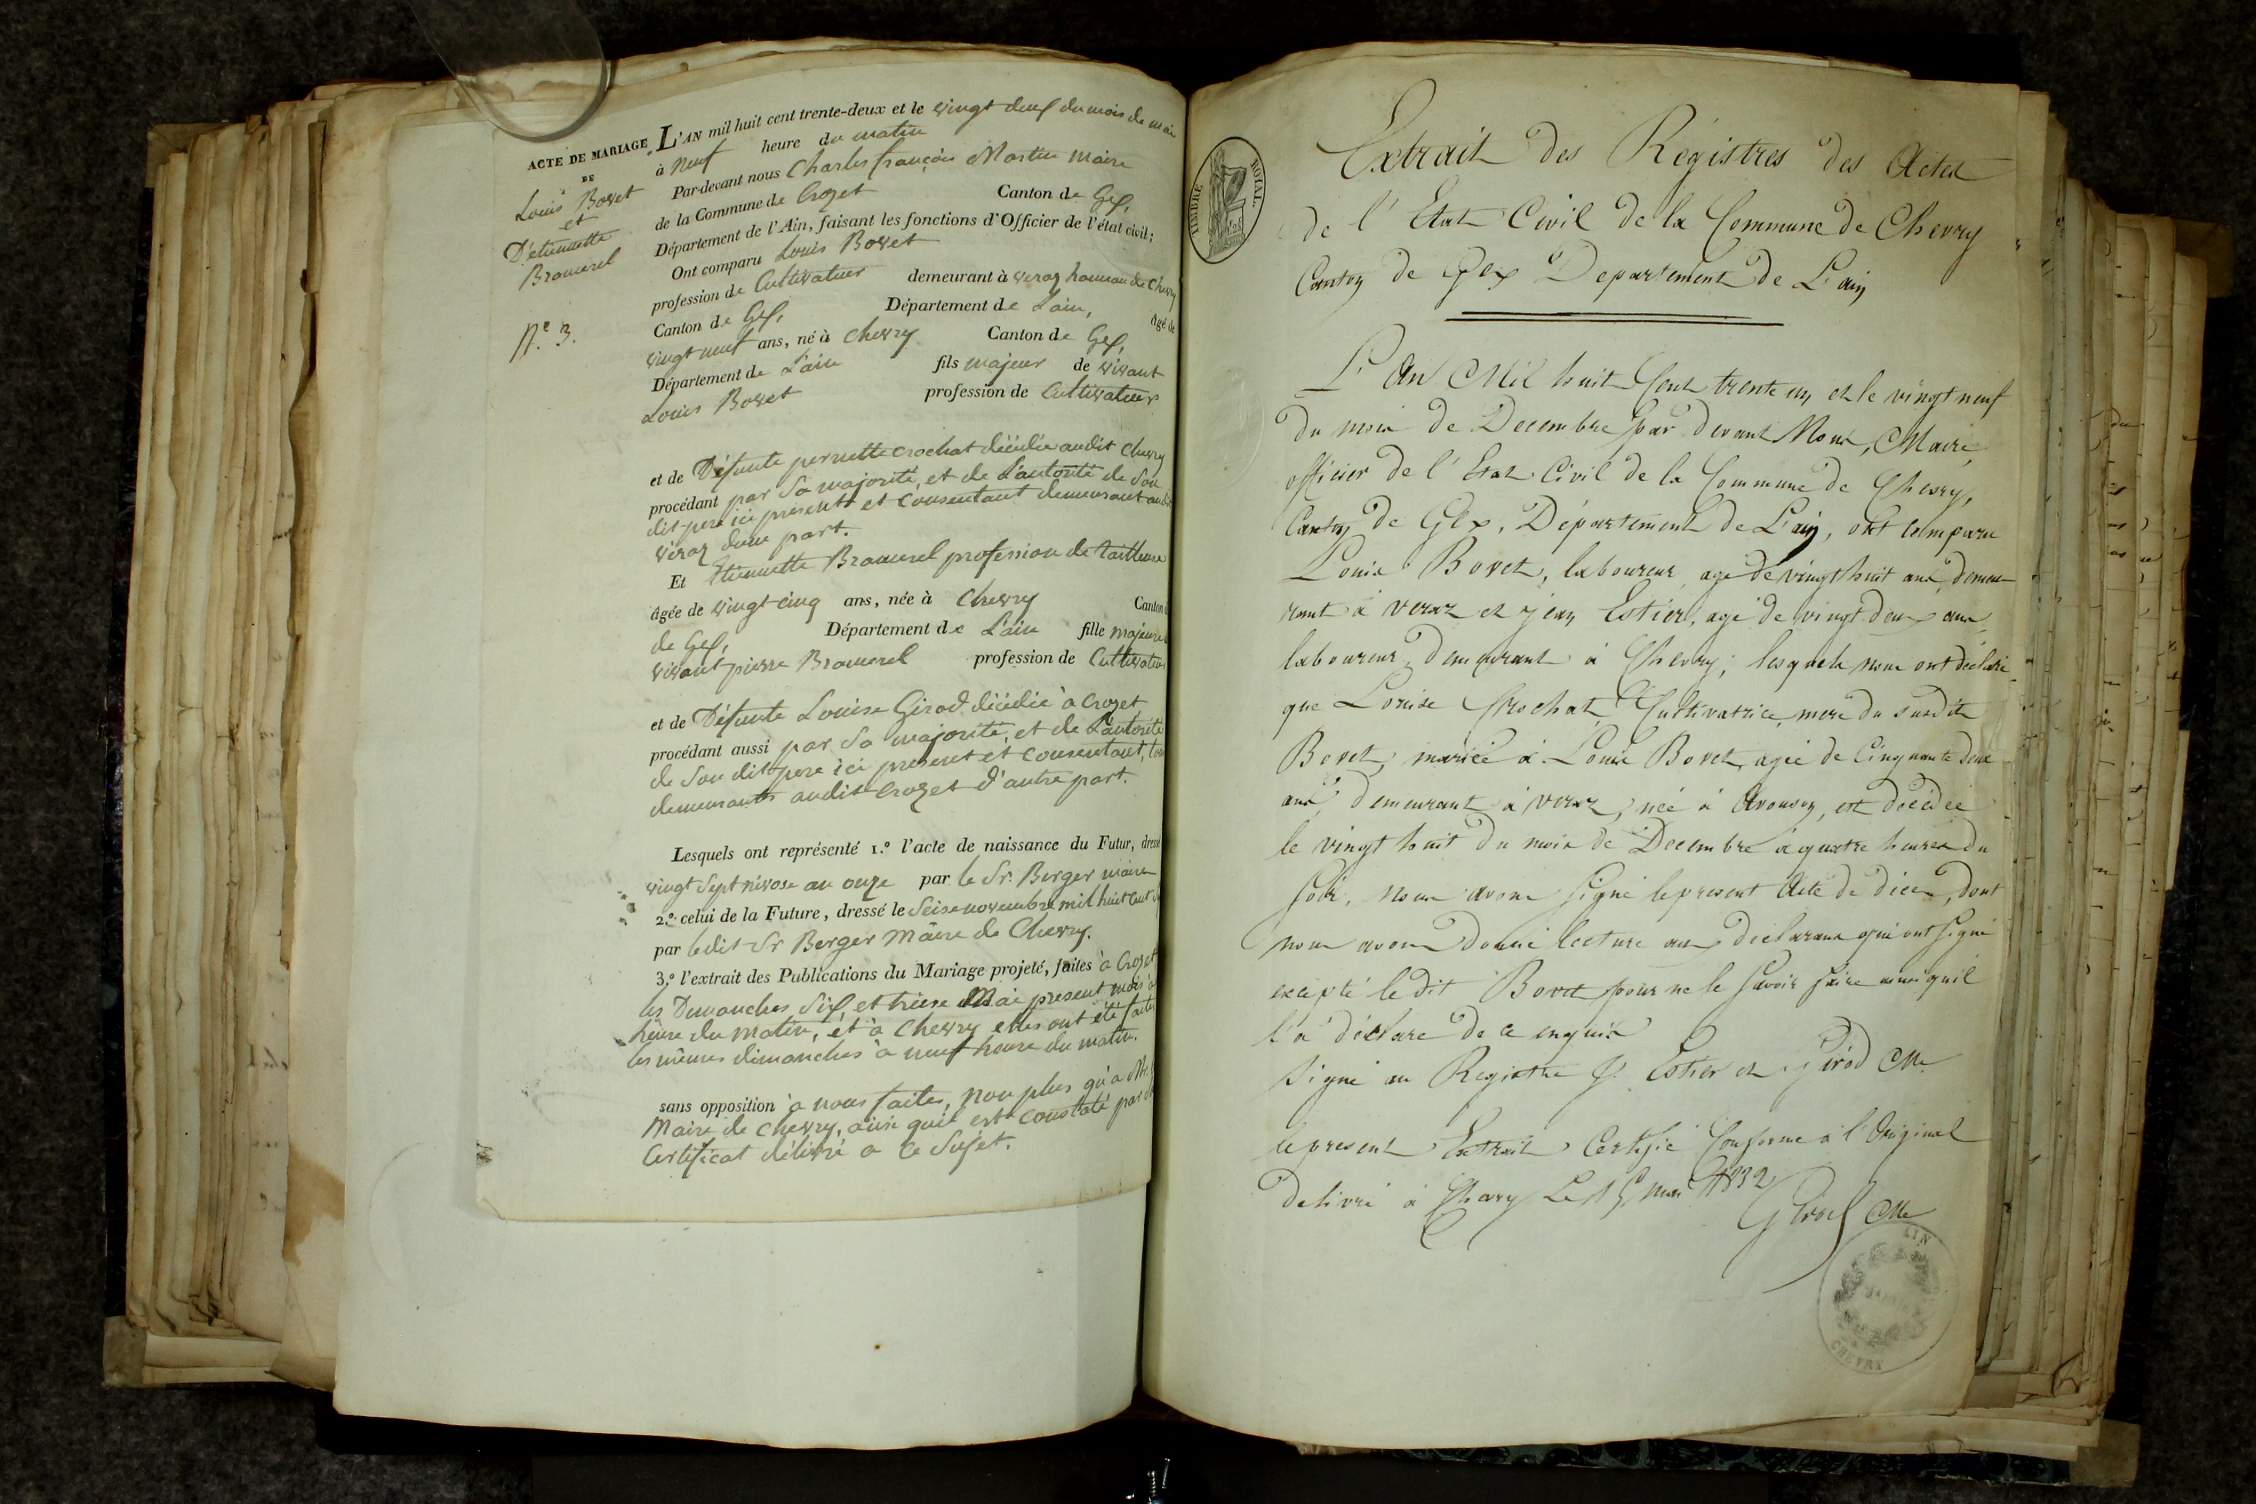 ACTE DE MARIAGE
DE
Louis Bovet
et
D'etiennette
Bramerel
N.º 3.
L'AN mil huit cent trente-deux et le vingt deux du mois de mai
à neuf heure du matin
Par-devant nous Charles françois Martin maire
de la Commune de Crozet Canton de Gex,
Département de l'Ain, faisant les fonctions d'Officier de l'état civil;
Ont comparu Louis Bovet
profession de Cultivateur demeurant à veraz hameau de Chevry
Canton de Gex, Département de L'ain, âgé de
vingt neuf ans, né à Chevry Canton de Gex,
Département de L'ain fils majeur de vivant
Louis Bovet profession de Cultivateur
et de Défunte pernette crochat décédée audit Chevry
procédant par Sa majorité, et de L'autorité de Son
dit pere ici présent et Consentant demeurant audit
véraz d'une part.
Et Etiennette Bramerel profession de tailleuse
âgée de vingt-cinq ans, née à Chevry Canton
de Gex, Département de L'ain fille majeure
vivant pierre Bramerel profession de Cultivateur
et de Défunte Louise Girod décédée à Crozet
procédant aussi par Sa majorité, et de L'autorité
de Son dit pere ici present et Consentant,
demeurants audit Crozet d'autre part.
Lesquels ont représenté 1.º l'acte de naissance du Futur, dressé
vingt Sept nivose an onze par le Sr. Berger maire
2.º celui de la Future, dressé le Seise novembre mil huit cent
par ledit Sr Berger Maire de Chevry.
3.º l'extrait des Publications du Mariage projeté, faites à Crozet
les Dimanches Six, et treise Mai present mois à
heure du matin, et à Chevry elles ont été faites
les mêmes dimanches à neuf heure du matin.
sans opposition à nous faites, non plus qu'à Mr. le
Maire de Chevry, ainsi quil est constaté par
Certificat délivré a ce Sujet.
TIMBRE ROYAL
Extrait des Régistres des Actes
de l'Etat Civil de la Commune de Chevry
Canton de Gex Departement de L'ain
L'An Mil huit Cent trente un, et le vingt neuf
du mois de Decembre par devant Nous, Maire
officier de l'Etat Civil de la Commune de Chevry,
Canton de Gex, Département de L'ain, ont comparu
Louis Bovet, laboureur agé de vingt huit ans, demeu-
rant à veraz et jean Estier, agé de vingt deux ans
laboureur demeurant à Chevry; lesquels nous ont déclaré
que Louise Crochat Cultivatrice, mere du susdit
Bovet, mariée à Louis Bovet, agée de Cinquante deux
ans, demeurant à veraz, née à Avouson, est décédée
le vingt huit du mois de Decembre à quatre heures du
soir, nous avons signé le present Acte de décès, dont
nous avons donné lecture aux déclarans qui ont signé
excepté le dit Bovet pour ne le savoir faire ainsi quil
l'a déclaré de ce enquis
Signé au Registre J. Estier et Girod Me
le present Extrait Certifié Conforme à l'Original
delivré à Chevry Le 15 mai 1832
Girod Me
AIN
MAIRIE
CHEVRY